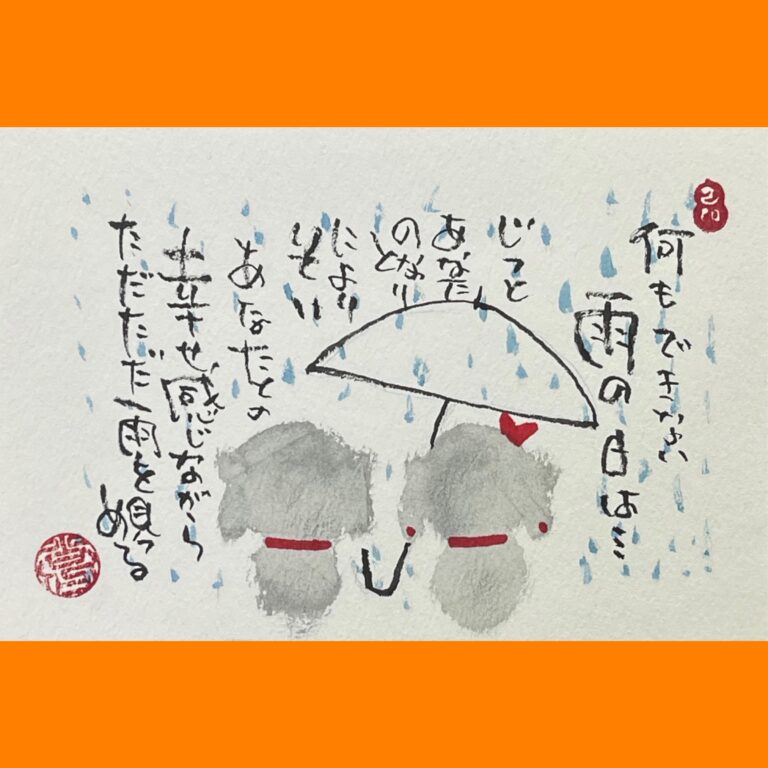 何もできない
雨の日は…
じっと
あなた
のとなり
により
そい
あなたとの
幸せ感じながら
ただただ雨を見つ
めてる